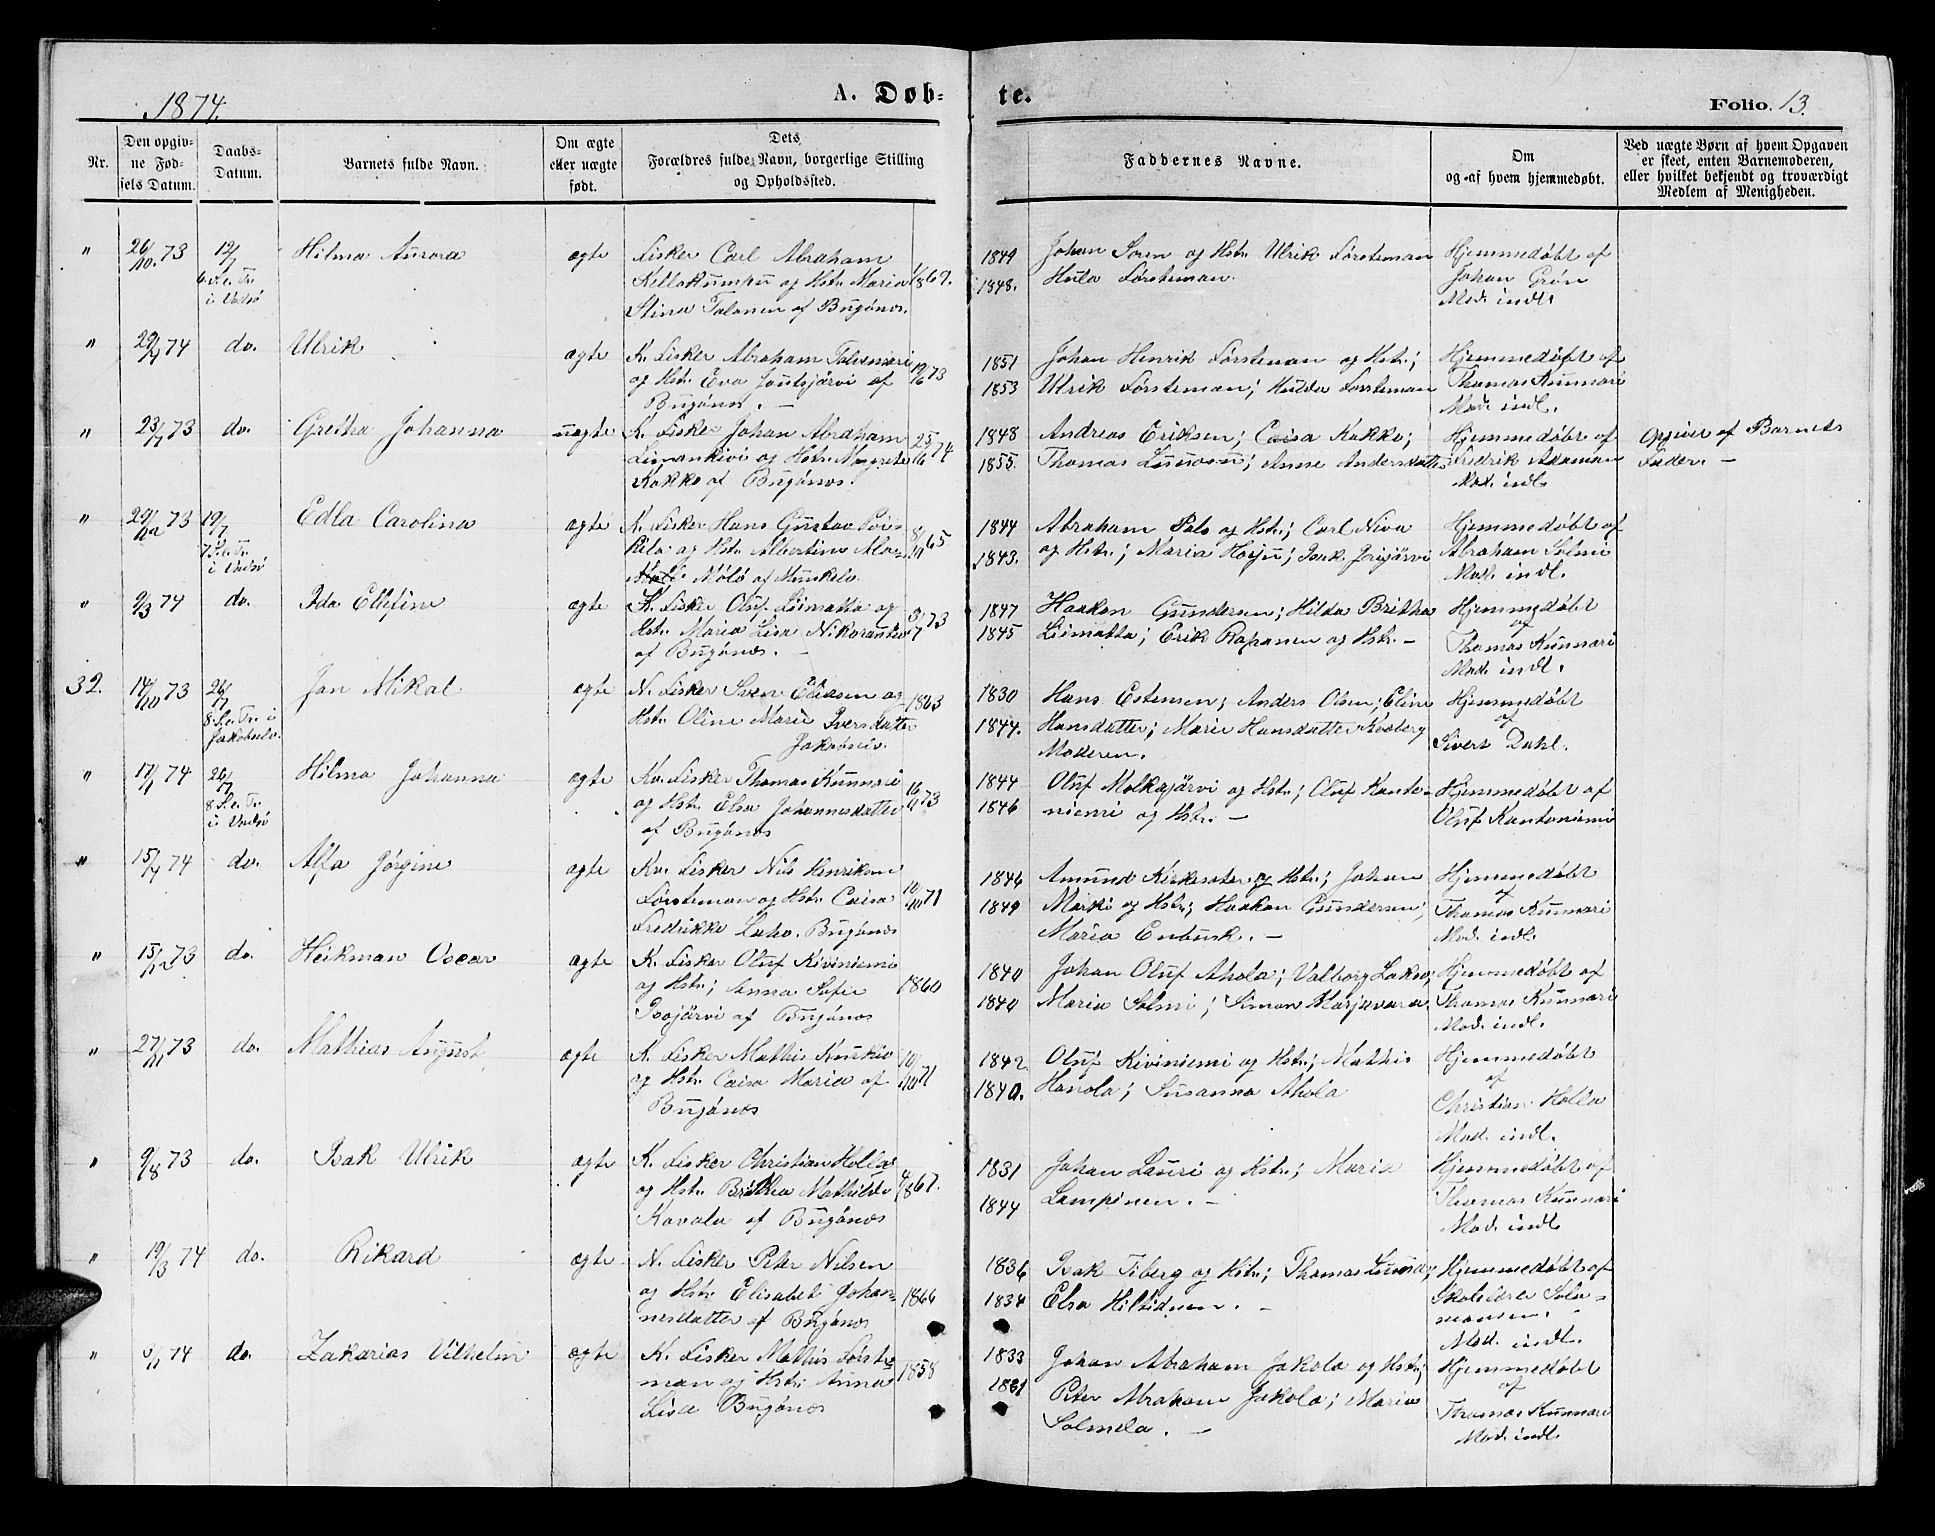 1874.
A. Døb-
te.
Folio. 13.
Nr.
Den opgiv-
ne Fød-
sels Datum.
Daabs-
Datum.
Barnets fulde Navn.
Om ægte
eller uægte
født.
Dets
Forældres fulde Navn, borgerlige Stilling
og Opholdssted.
Faddernes Navne.
Om
og af hvem hjemmedøbt.
Ved uægte Børn af hvem Opgaven
er skeet, enten Barnemoderen,
eller hvilket bekjendt og troværdigt
Medlem af Menigheden.
" 26/10. 73 12/7 Hilma Aurora ægte Fisker Carl Abraham 1849 Johan Soren og Hstr. Ulrik Førsteman Hjemmedøbt af
6 S. e. Tr. Kellokumpu og Hstr. Maria 1867. 1848. Hula Førsteman. Johan Grøn
i Vadsø Stina Talonen af Bugønæs. Mod. indl.
" 74 do. Ulrik ægte K. Fisker Abraham 1851 Johan Henrik Førsteman og Hstr.; Hjemmedøbt af
og Hstr. Eva Joutsjärvi af 19/6 73 1853 Ulrik Førsteman; Hulda Førsteman Thomas Kunnari
Bugønæs. — Mod. indl.
" 23/7 73 do. Gretha Johanna uægte K. Fisker Johan Abraham 25/6 74 1848 Andreas Eriksen; Caisa Kokko; Hjemmedøbt af Opgivet af Barnets
og Hstr. Margrete 1855. Thomas ; Anne Andersdatter Fredrik Adaman Fader. —
Kokko af Bugønæs. Mod. indl.
" 29/12 73 19/7 Edla Carolina ægte K. Fisker Hans Gustav 1865 1844 Abraham Palo og Hstr.; Carl Niva Hjemmedøbt af
7 S. e. Tr. og Hstr. Albertine 1843. og Hstr.; Maria ; Isak Jerijärvi Abraham Salmi
i Vadsø Nölö af Munkelv. Mod. indl.
" 9/3 74 do. Ida Ellefine ægte K. Fisker Oluf Liimatta og 3/7 73 1847 Haakon Gundersen; Hilda Britha Hjemmedøbt
Hstr. Maria Lisa 1845 Liimatta; Erik Rapanen og Hstr. — af
af Bugønæs. — Thomas Kunnari
Mod. indl.
32. 14/10 73 26/7 Jan Mikal ægte N. Fisker Sven Eliasen og 1863 1830 Hans Estensen; Anders Olsen; Eline Hjemmedøbt
8 S. e. Tr. i Hstr. Oline Marie Iversdatter 1844. Hansdatter; Marie Hansdatter af
Jakobselv. Jakobselv. Moderen. Sivert Dahl.
" 17/1 74 26/7 Hilma Johanna ægte Kv. Fisker Thomas Kunnari 16/11 73 1844 Oluf Molkajärvi og Hstr.; Oluf Kante- Hjemmedøbt af
8 S. e. Tr. og Hstr. Elsa Johannesdatter 1846 niemi og Hstr. — Oluf Kantoniemi
i Vadsø af Bugønæs
" 15/4 74 do. Alfa Jørgine ægte Kv. Fisker Nils Henriksen 10/10 71 1846 Amund Kirkesæter og Hstr.; Johan Hjemmedøbt
Førsteman og Hstr. Caisa 1849 Marki og Hstr.; Haakon Gundersen; af
Fredrikke Laho. Bugønæs Maria Enbusk. — Thomas Kunnari
Mod. indl.
" 15/12 73 do. Heikman Oscar ægte K. Fisker Oluf Kiviniemi 1840 Johan Oluf Ahola; Valborg ; Hjemmedøbt af
og Hstr; Anna Sofie 1860 1840 Maria Salmi; Simon Marjavara Thomas Kunnari
Isojärvi af Bugønæs Mod. indl.
" 27/11 73 do. Mathias August ægte K. Fisker Mathis 10/10 71 1842. Oluf Kiviniemi og Hstr.; Mathis Hjemmedøbt
og Hstr. Caisa Maria af 1840. Hanola; Susanna Ahola af
Bugønæs Christian Holla
Mod. indl.
" 9/8 73 do. Isak Ulrik ægte K. Fisker Christian Holla 1867. 1831 Johan Lauri og Hstr.; Maria Hjemmedøbt af
og Hstr. Britha Mathilde 1844 Lampinen. — Thomas Kunnari
Kavala af Bugønæs Mod. indl
" 19/3 74 do. Rikard ægte N. Fisker Peter Nilsen 1836 Isak Fiberg og Hstr.; Thomas ; Hjemmedøbt af
og Hstr. Elisabet Johan- 1866 1834 Elsa . — Skolelærer Salo-
nesdatter af Bugønæs monsen.
Mod. indl.
" 74 do. Zakarias Vilhelm ægte K. Fisker Mathis Først- 1858 1833 Johan Abraham Jakola og Hstr; Hjemmedøbt
man og Hstr. Anna 1831 Peter Abraham Jakola; Maria af
Lisa Bugønæs Salmela. — Thomas Kunnari
Mod. indl.